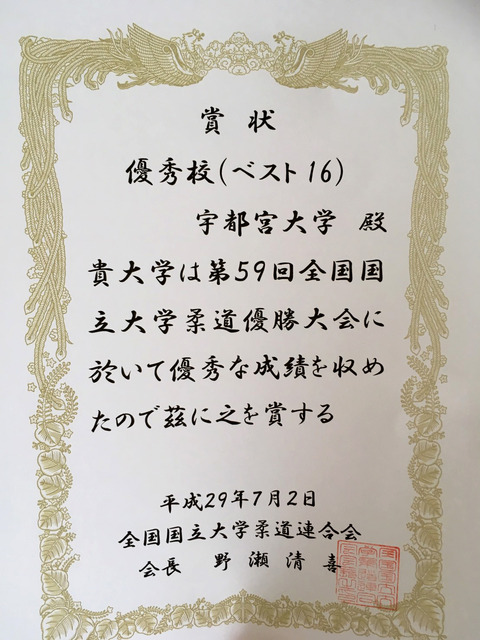 賞状
優秀校(ベスト16)
宇都宮大学 殿
貴大学は第59回全国国
立大学柔道優勝大会に
於いて優秀な成績を収め
たので茲に之を賞する
平成29年7月2日
全国国立大学柔道連合会
会長 野瀬清喜